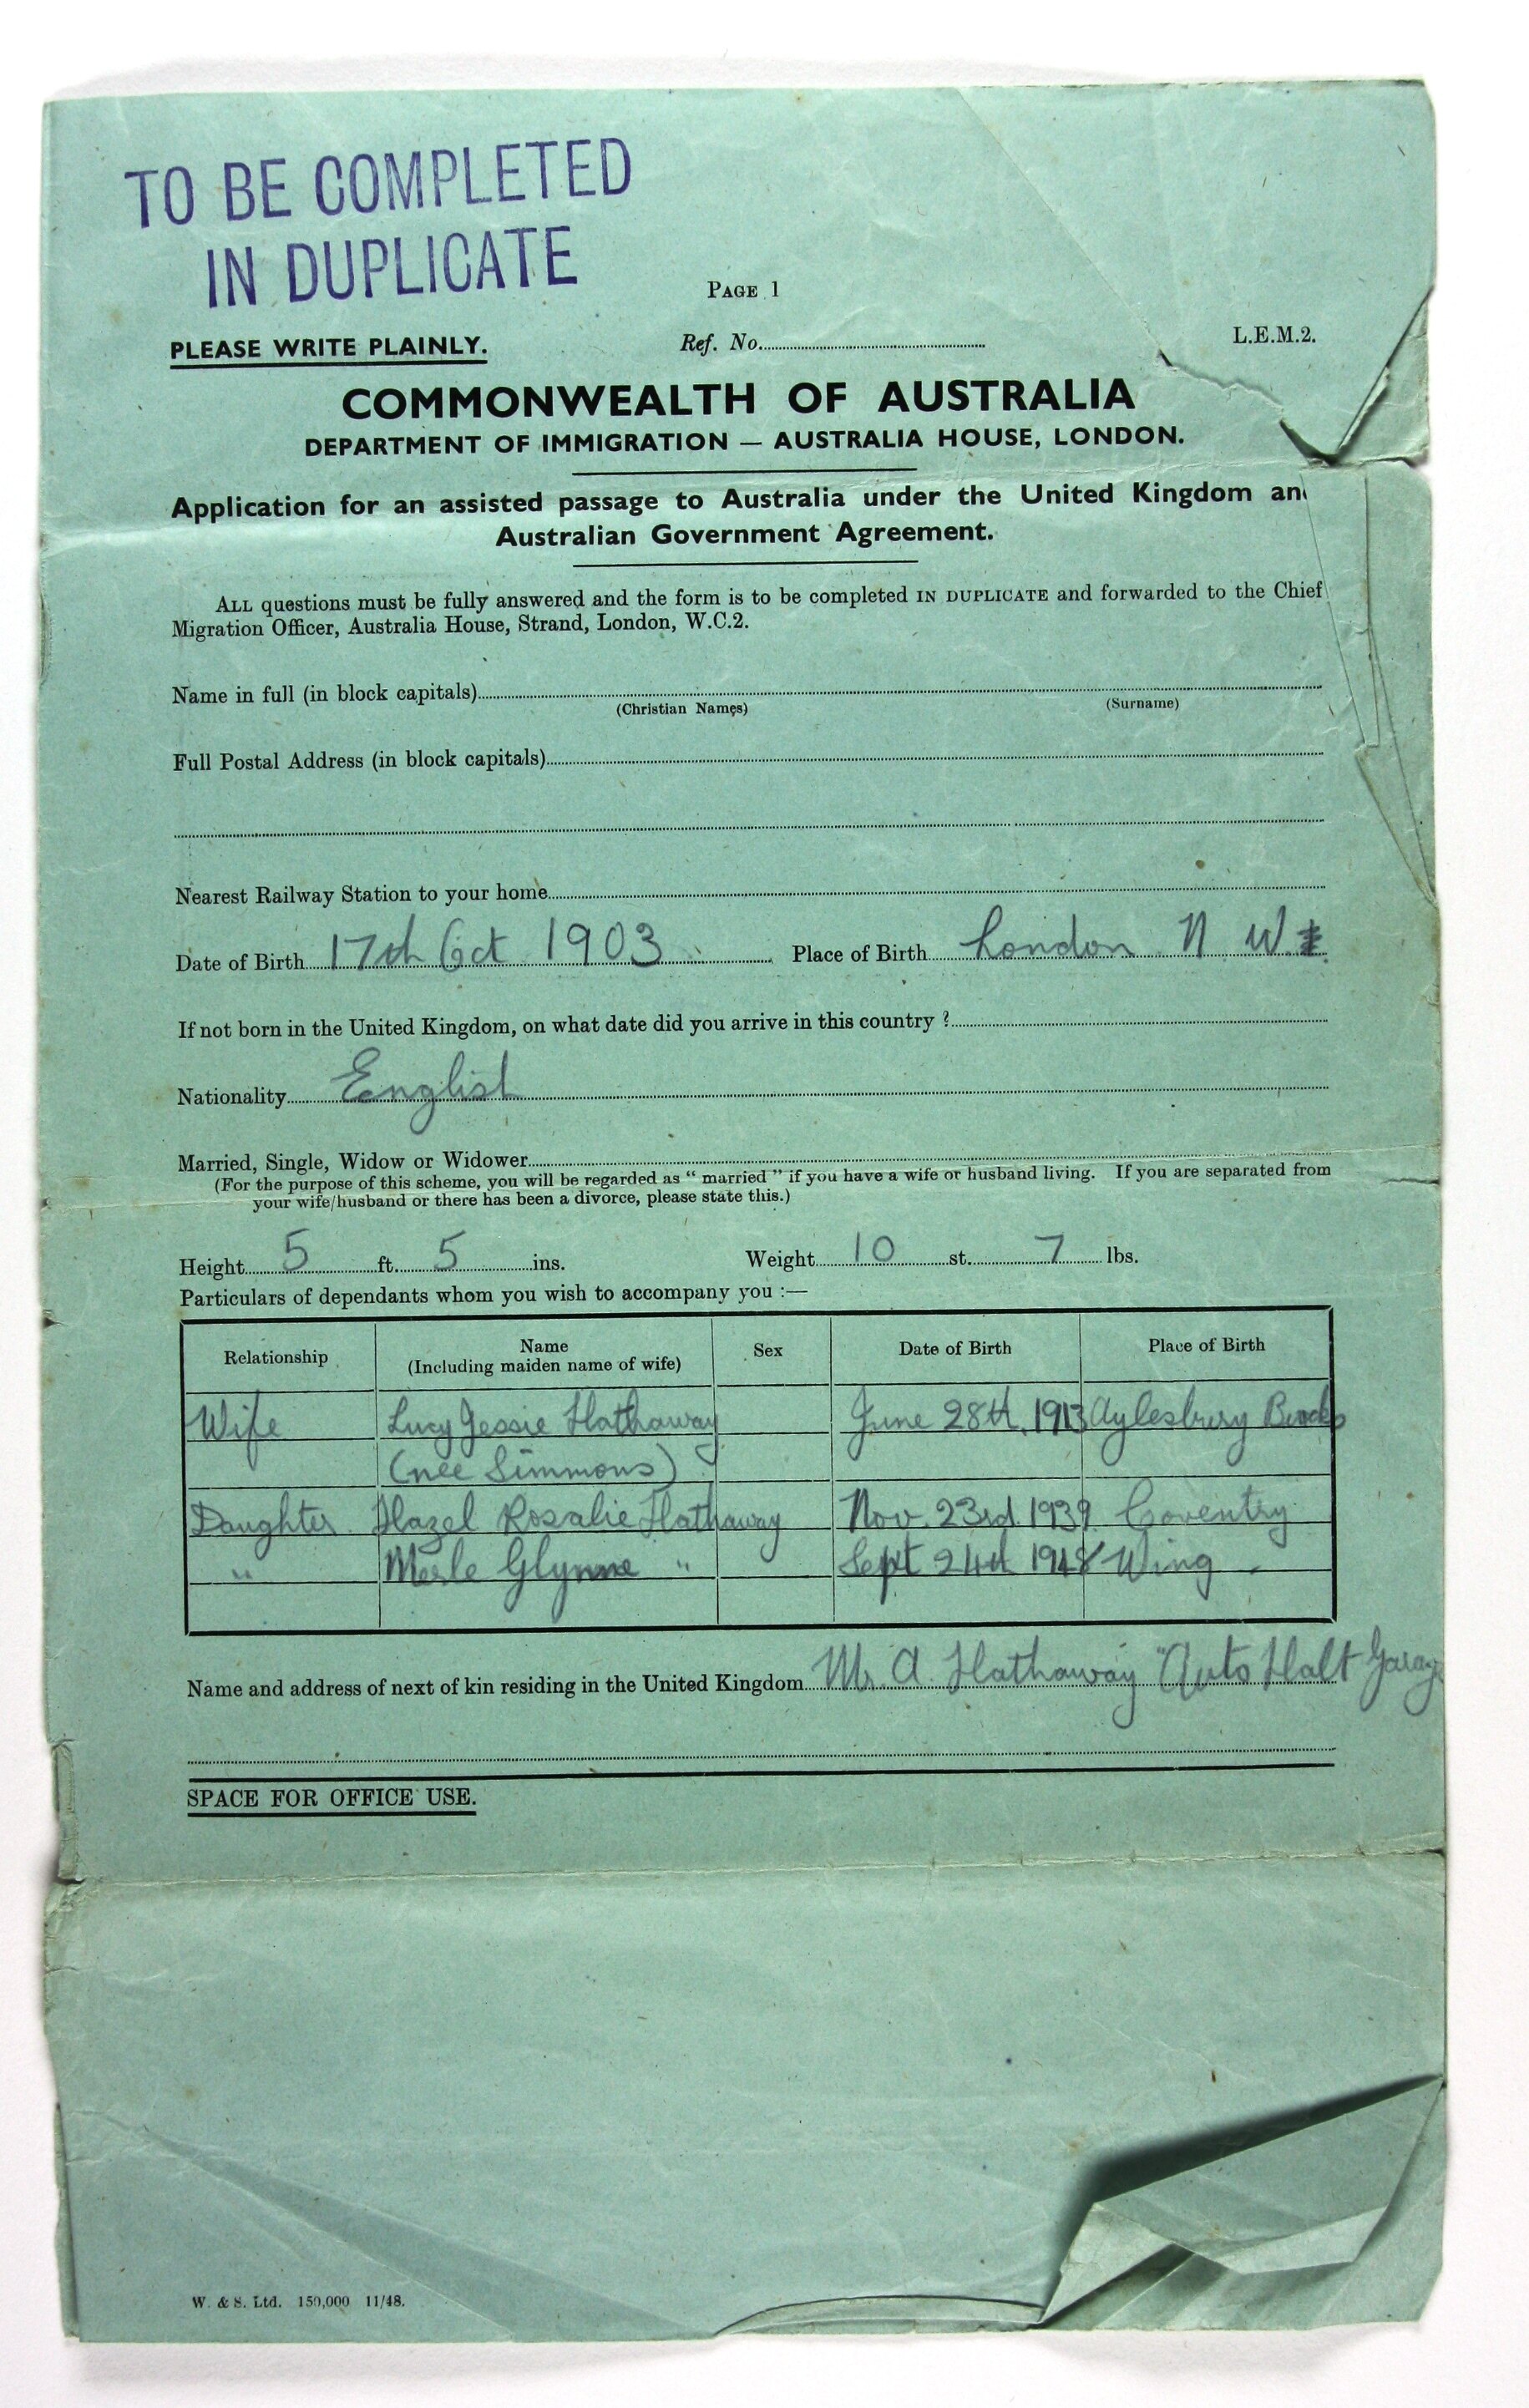 TO BE COMPLETED
IN DUPLICATE
PAGE 1
PLEASE WRITE PLAINLY.
Ref. No.
L.E.M.2.
COMMONWEALTH OF AUSTRALIA
DEPARTMENT OF IMMIGRATION — AUSTRALIA HOUSE, LONDON.
Application for an assisted passage to Australia under the United Kingdom an
Australian Government Agreement.
ALL questions must be fully answered and the form is to be completed IN DUPLICATE and forwarded to the Chief
Migration Officer, Australia House, Strand, London, W.C.2.
Name in full (in block capitals)
(Christian Names) (Surname)
Full Postal Address (in block capitals)
Nearest Railway Station to your home
Date of Birth 17th Oct 1903 Place of Birth London N W
If not born in the United Kingdom, on what date did you arrive in this country ?
Nationality English
Married, Single, Widow or Widower
(For the purpose of this scheme, you will be regarded as “ married ” if you have a wife or husband living. If you are separated from
your wife/husband or there has been a divorce, please state this.)
Height 5 ft. 5 ins. Weight 10 st. 7 lbs.
Particulars of dependants whom you wish to accompany you :—
Relationship Name Sex Date of Birth Place of Birth
(Including maiden name of wife)
Wife Lucy Jessie Hathaway June 28th, 1913 Aylesbury Bucks
(nee Simmons)
Daughter Hazel Rosalie Hathaway Nov. 23rd. 1939 Coventry
" Merle Glynne " Sept 24th 1948 Wing
Name and address of next of kin residing in the United Kingdom Mr. A. Hathaway "Auto Halt Garage
SPACE FOR OFFICE USE.
W. & S. Ltd. 150,000 11/48.